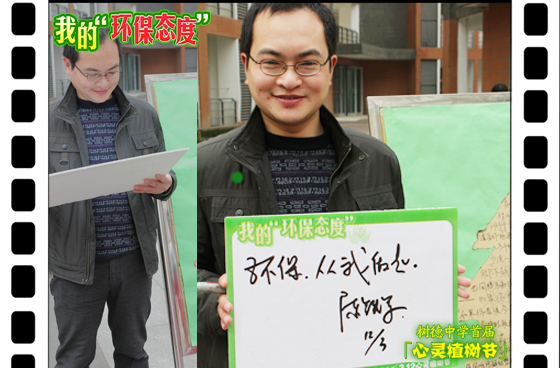 我的“环保态度”
我的“环保态度”
环保.从我做起.
12/3
树德中学首届
「心灵植树节」